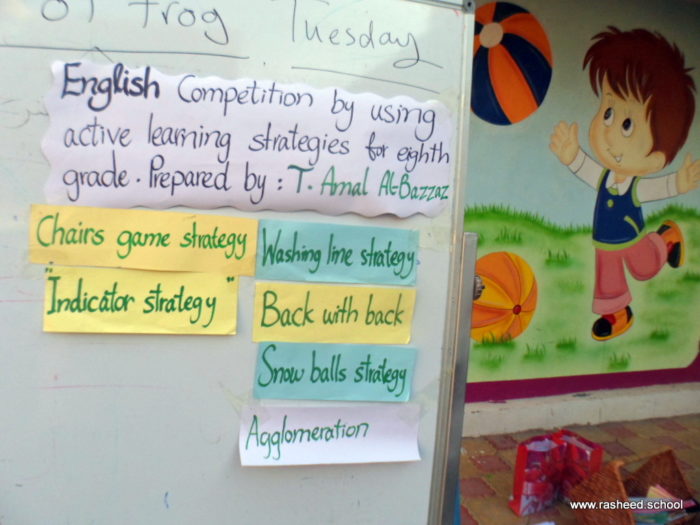 of frog Tuesday
English Competition by using
active learning strategies for eighth
grade. Prepared by : T. Amal Al-Bazzaz
Chairs game strategy
"Indicator strategy"
Washing line strategy
Back with back
Snow balls strategy
Agglomeration
www.rasheed.school